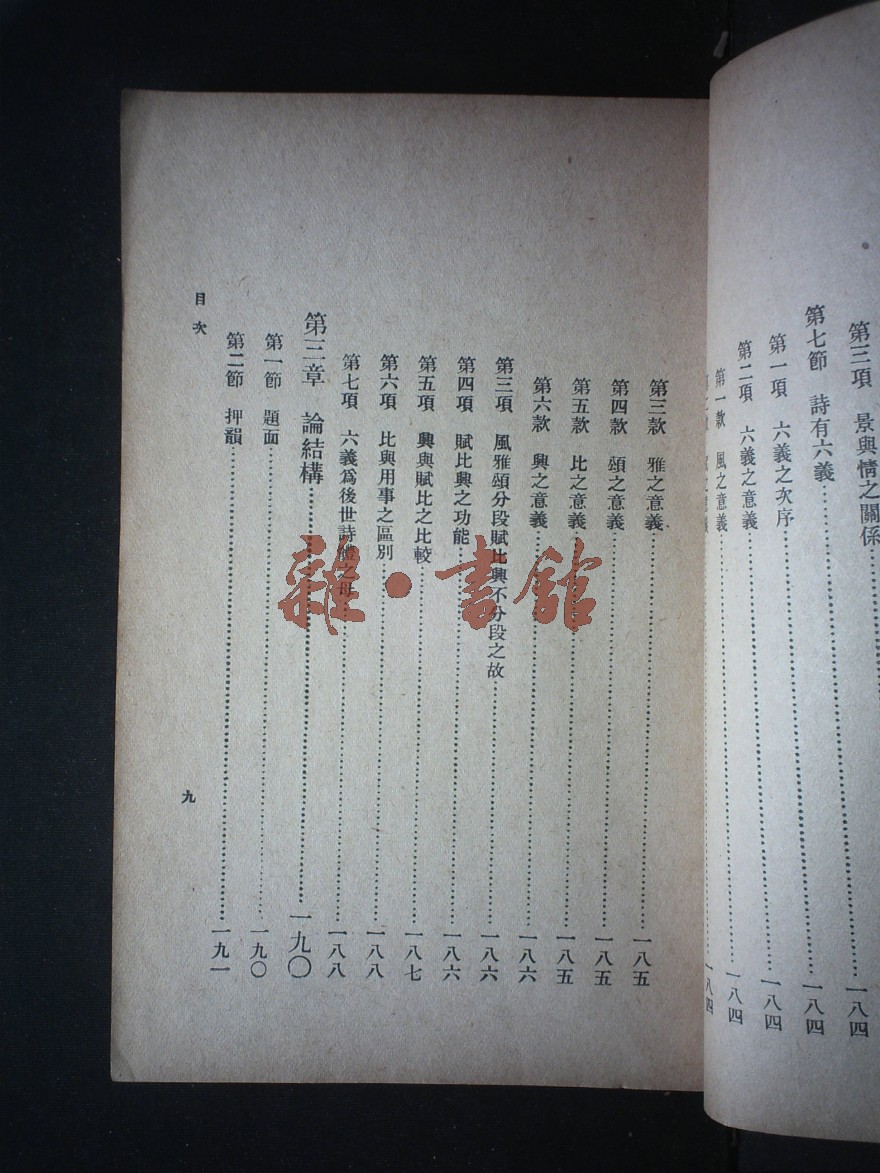 第三項　景與情之關係
第七節　詩有六義 一八四
第一項　六義之次序 一八四
第二項　六義之意義 一八四
第一款　風之意義 一八四
第三款　雅之意義 一八五
第四款　頌之意義 一八五
第五款　比之意義 一八五
第六款　興之意義 一八六
第三項　風雅頌分段賦比興不分段之故 一八六
第四項　賦比興之功能 一八六
第五項　興與賦比之比較 一八七
第六項　比與用事之區別 一八八
第七項　六義爲後世詩體之母 一八八
第三章　論結構 一九〇
第一節　題面 一九〇
第二節　押韻 一九一
目次
九
雜·書館